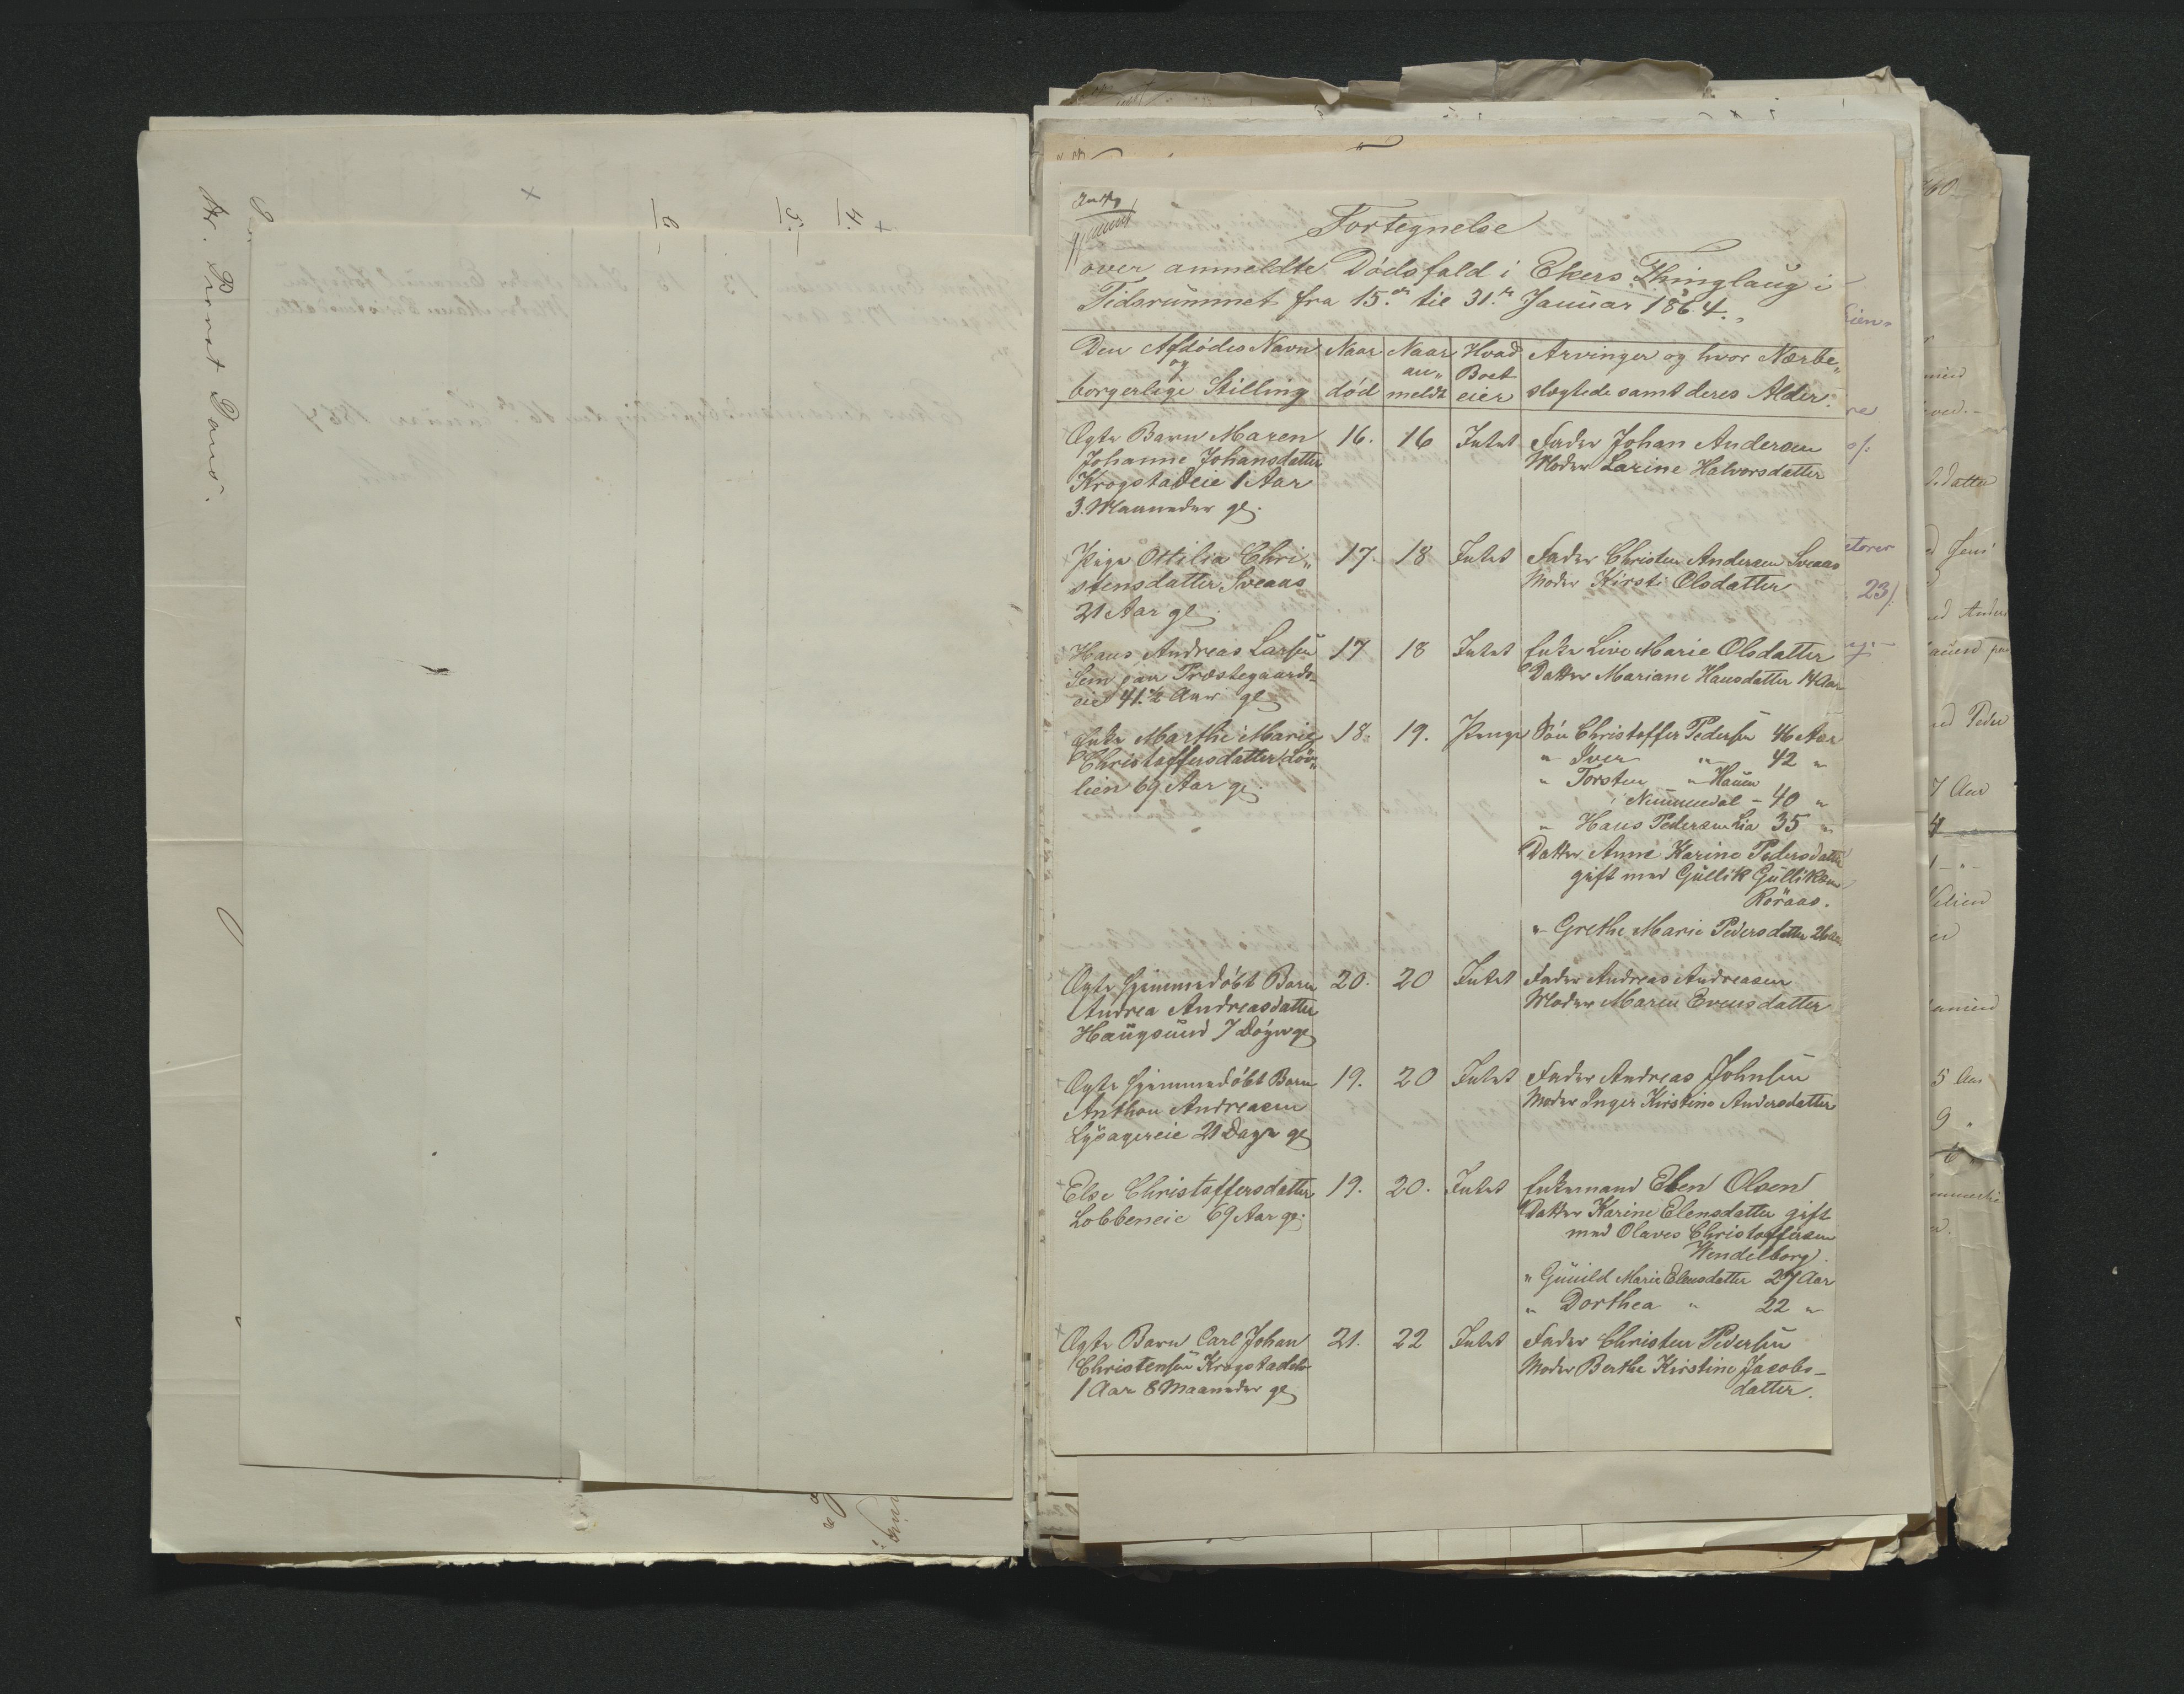 Hr. Provst Daus.
Fortegnelse
over anmeldte Dödsfald i Ekers Thinglaug i
Tidsrummet fra 15.de til 31.te Januar 1864.
Den Afdödes Navn
og
borgerlige Stilling
Naar
död
Naar
an„
meldt
Hvad
Boet
eier
Arvinger og hvor Nærbe„
slægtede samt deres Alder.
Ægte Barn Maren
Johanne Johansdatter
Krogstadeie 1 Aar
3. Maaneder gl.
16.
16
Intet
Fader Johan Andersen
Moder Larine Halvorsdatter
Pige Ottilia Chri„
stensdatter Sveaas
21 Aar gl.
17.
18
Intet
Fader Christen Andersen Sveaas
Moder Kirsti Olsdatter
Hans Andreas Larsen
Præstegaards
eie 41 ½ Aar gl
17
18
Intet
Enke Live Marie Olsdatter
Datter Mariane Hansdatter 14 Aar
Enke Marthe Marie
Christoffersdatter Löv„
lien 69 Aar gl.
18.
19.
Penge
Sön Christoffer Pedersen 46 Aar
" Iver " 42 "
" Torsten "
Nummedal - 40 "
" Hans Pedersen Lia 35 "
Datter Anne Karine Pedersdatter
gift med Gullik Gulliksen
Röraas.
" Grethe Marie Pedersdatter 26 Aar
Ægte hjemmedöbt Barn
Andrea Andreasdatter
Haugsund 7 Dögn gl
20.
20
Intet
Fader Andreas Andreasen
Moder Maren Evensdatter
Ægte hjemmedöbt Barn
Anthon Andreasen
Lysagereie 21 Dage gl
19.
20
Intet
Fader Andreas Johnsen
Moder Inger Kirstine Andersdatter
Else Christoffersdatter
Lobbeneie 69 Aar gl.
19.
20.
Intet
Enkemand Elen Olsen
Datter Karine Elensdatter gift
med Olaves Christoffersen
Wendelborg.
" Gunild Marie Elensdatter 27 Aar
" Dorthea " 22 "
Ægte Barn Carl Johan
Christensen Krogstadeie
1 Aar 8 Maaneder gl
21.
22
Intet
Fader Christen Pedersen
Moder Berthe Kirstine Jacobs-
datter.
23/.